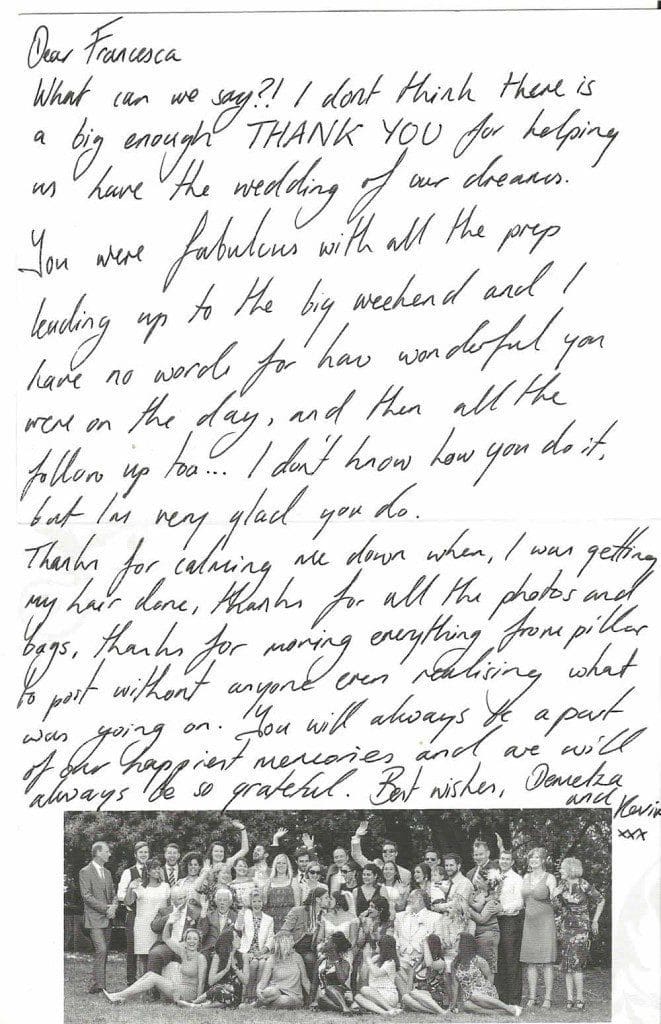 Dear Francesca
What can we say?! I dont think there is
a big enough THANK YOU for helping
us have the wedding of our dreams.
You were fabulous with all the prep
leading up to the big weekend and I
have no words for how wonderful you
were on the day, and then all the
follow up too... I don't know how you do it,
but I'm very glad you do.
Thanks for calming me down when, I was getting
my hair done, thanks for all the photos and
bags, thanks for moving everything from pillar
to post without anyone even realising what
was going on. You will always be a part
of our happiest memories and we will
always be so grateful. Best wishes, Demelza
and Kevin
xxx